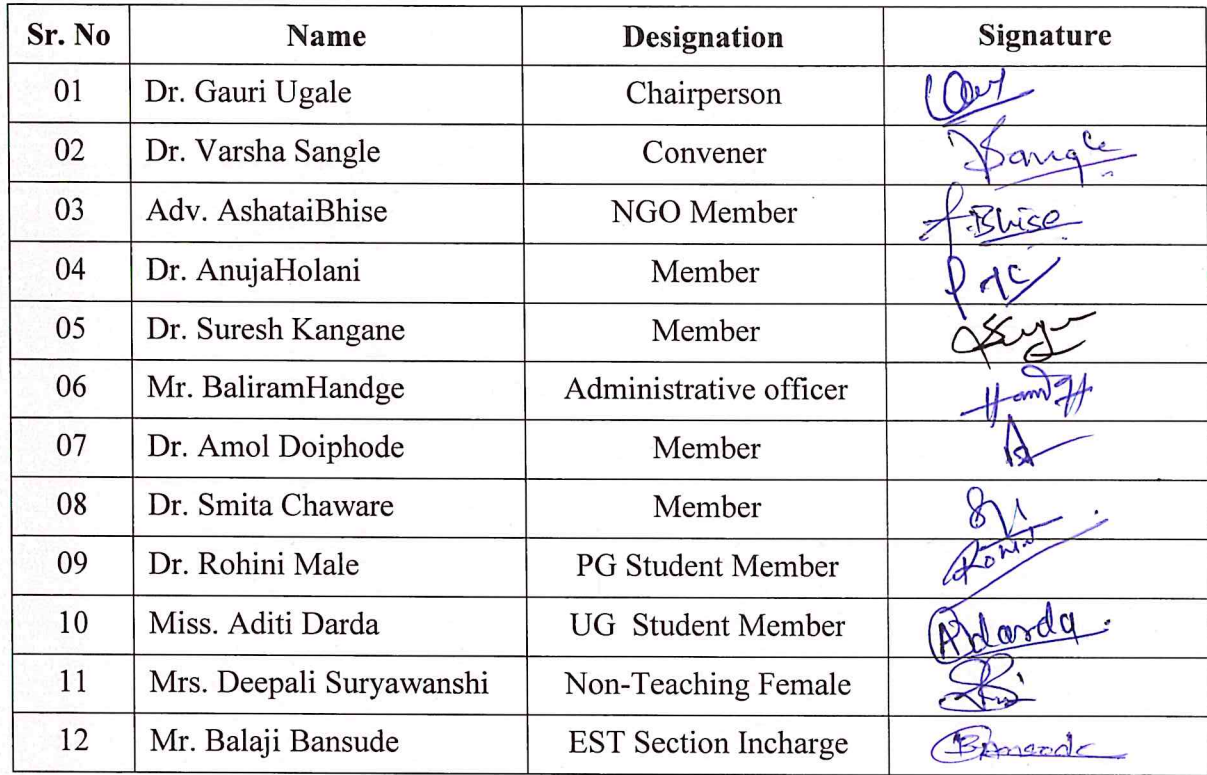 Sr. No Name Designation Signature
01 Dr. Gauri Ugale Chairperson
02 Dr. Varsha Sangle Convener Sangle
03 Adv. AshataiBhise NGO Member A.Bhise
04 Dr. AnujaHolani Member
05 Dr. Suresh Kangane Member
06 Mr. BaliramHandge Administrative officer
07 Dr. Amol Doiphode Member
08 Dr. Smita Chaware Member
09 Dr. Rohini Male PG Student Member
10 Miss. Aditi Darda UG Student Member Adarda
11 Mrs. Deepali Suryawanshi Non-Teaching Female
12 Mr. Balaji Bansude EST Section Incharge